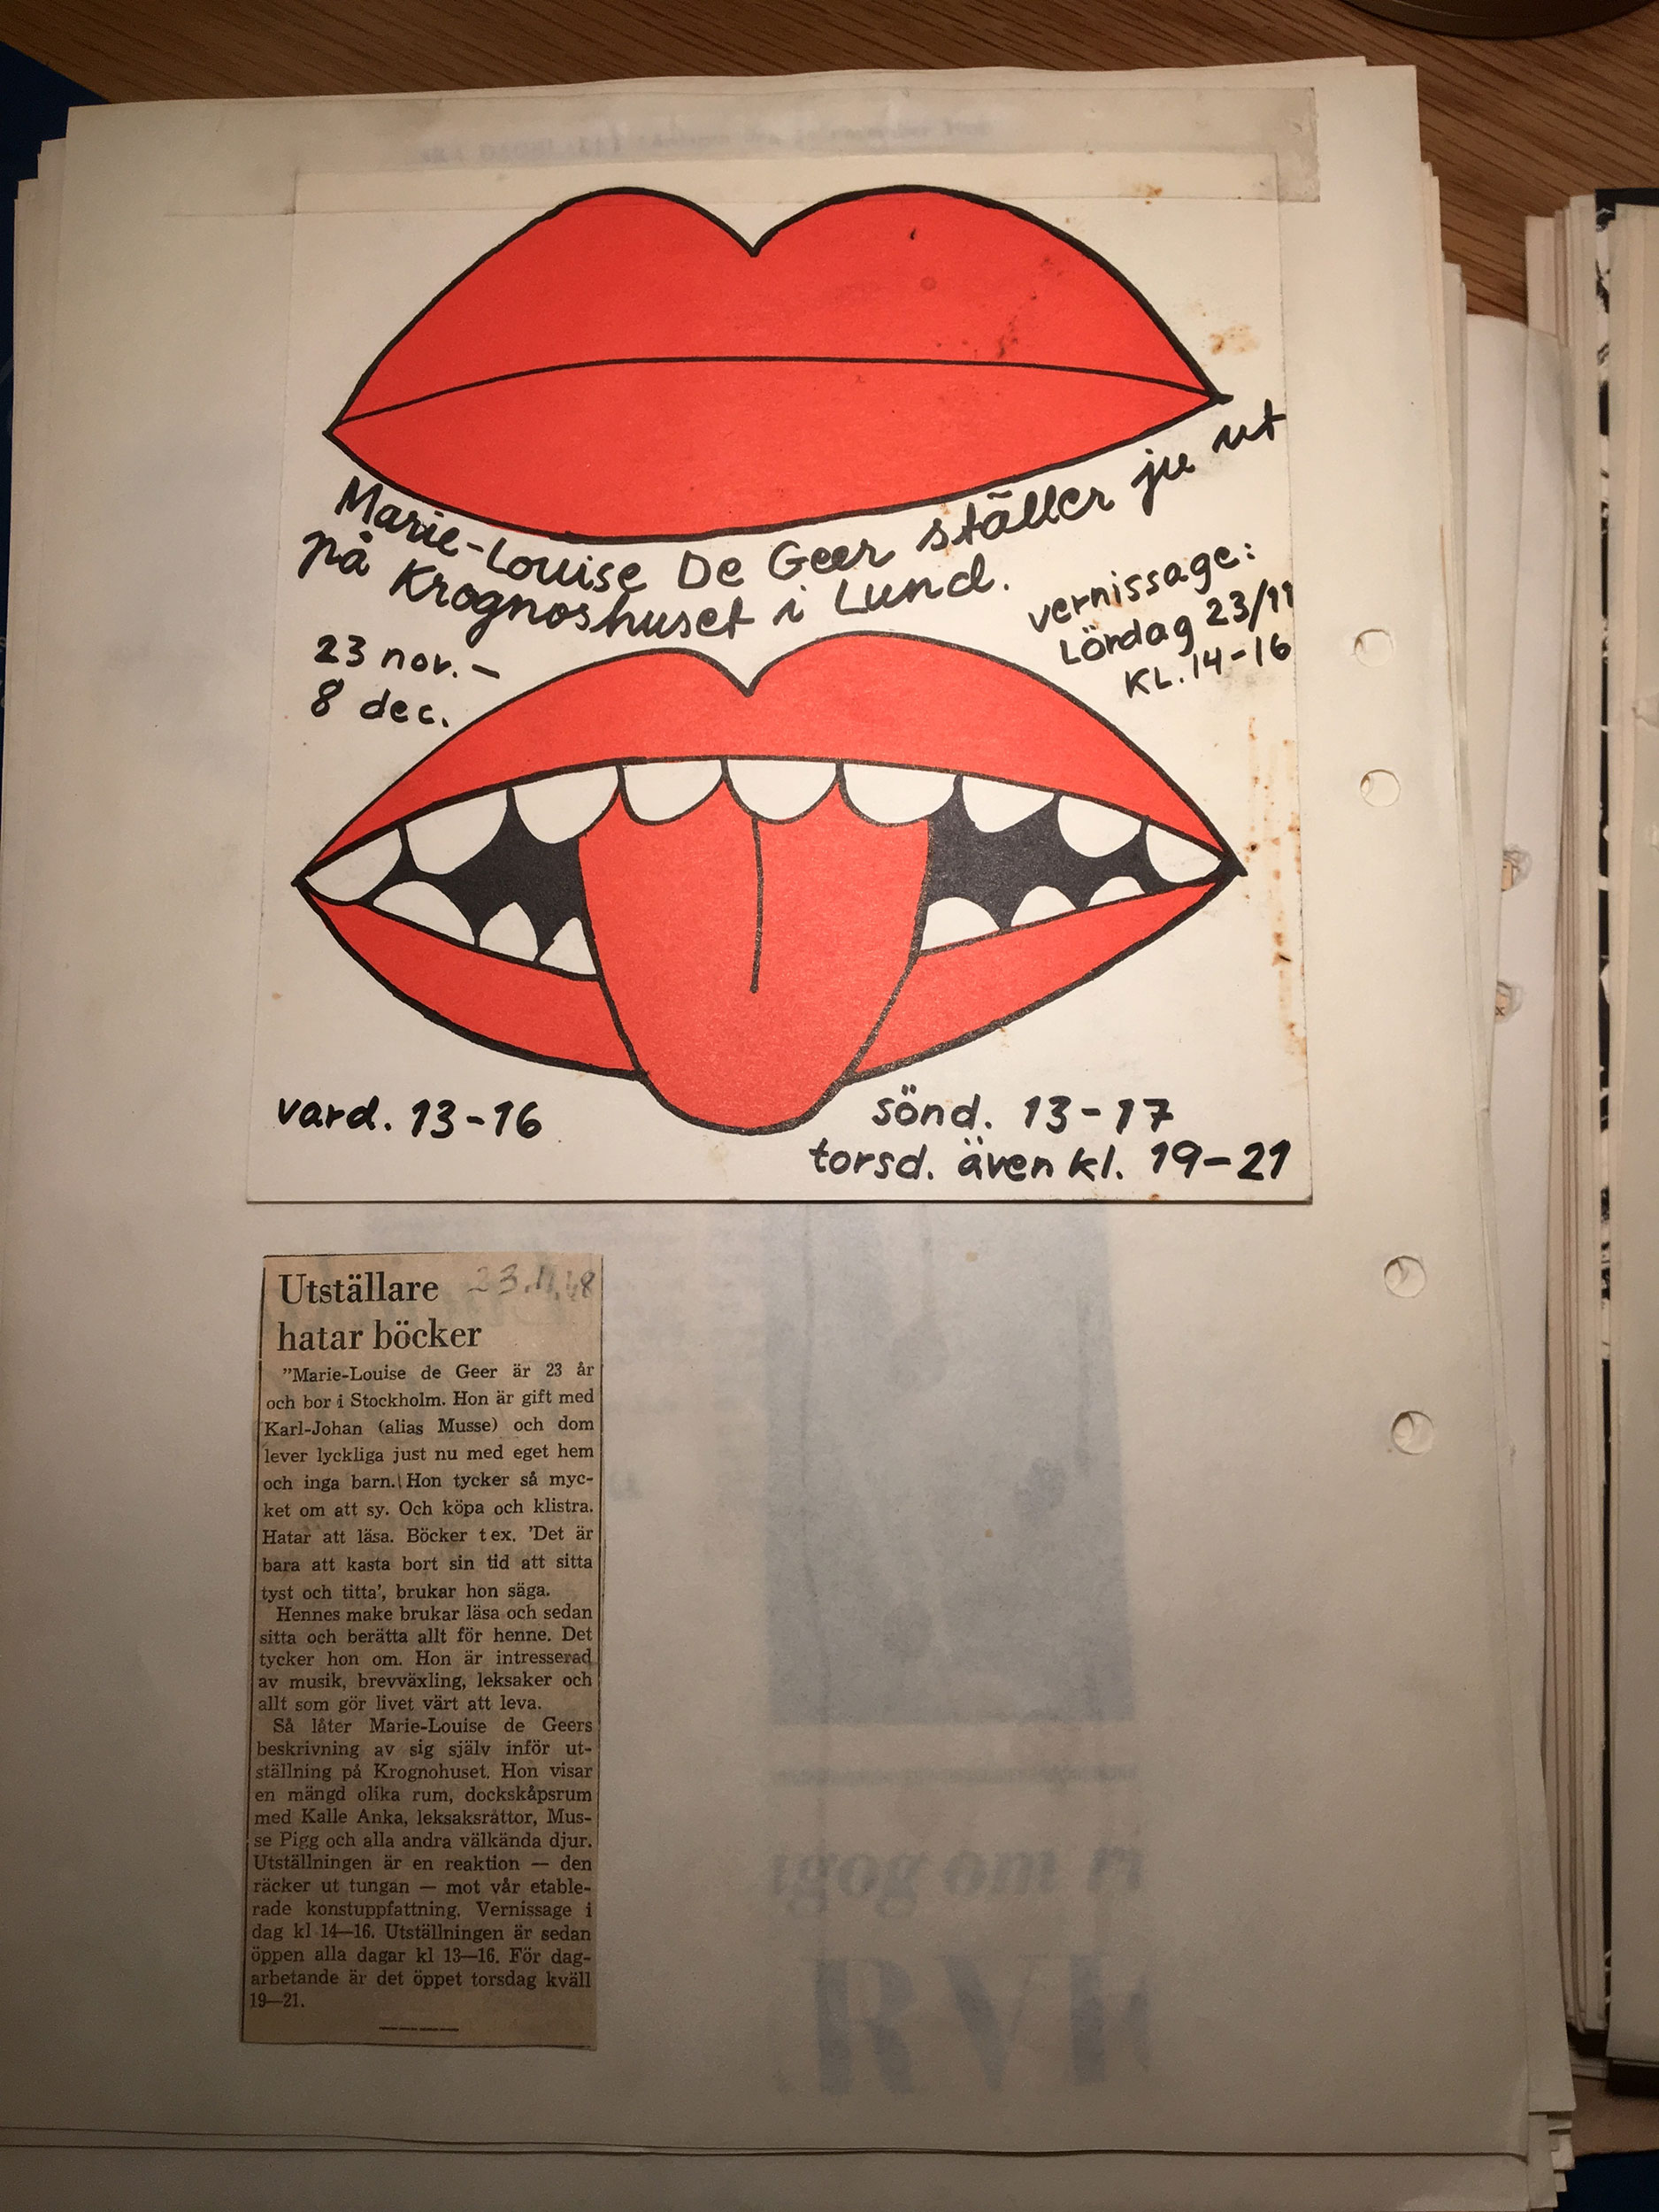 Marie-Louise De Geer ställer ju ut
på Krognoshuset i Lund.
vernissage:
Lördag 23/11
KL. 14-16
23 nov. –
8 dec.
vard. 13-16
sönd. 13-17
torsd. även kl. 19-21
Utställare 23.11.68
hatar böcker
"Marie-Louise de Geer är 23 år
och bor i Stockholm. Hon är gift med
Karl-Johan (alias Musse) och dom
lever lyckliga just nu med eget hem
och inga barn. Hon tycker så myc-
ket om att sy. Och köpa och klistra.
Hatar att läsa. Böcker t ex. 'Det är
bara att kasta bort sin tid att sitta
tyst och titta', brukar hon säga.
Hennes make brukar läsa och sedan
sitta och berätta allt för henne. Det
tycker hon om. Hon är intresserad
av musik, brevväxling, leksaker och
allt som gör livet värt att leva.
Så låter Marie-Louise de Geers
beskrivning av sig själv inför ut-
ställning på Krognohuset. Hon visar
en mängd olika rum, dockskåpsrum
med Kalle Anka, leksaksråttor, Mus-
se Pigg och alla andra välkända djur.
Utställningen är en reaktion — den
räcker ut tungan — mot vår etable-
rade konstuppfattning. Vernissage i
dag kl 14—16. Utställningen är sedan
öppen alla dagar kl 13—16. För dag-
arbetande är det öppet torsdag kväll
19—21.